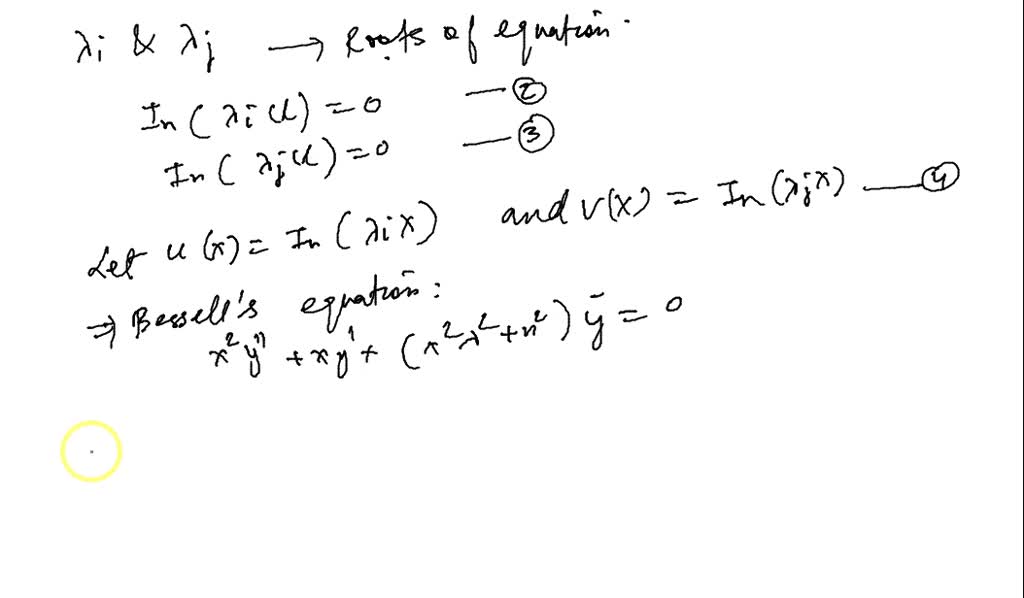 λi & λj → Roots of equation.
In (λid) = 0 —②
In (λjd) = 0 —③
Let u(x) = In (λix) and v(x) = In (λjx) —④
⇒ Bessell's equation:
x²y'' + xy' + (x²λ² + n²) ȳ = 0